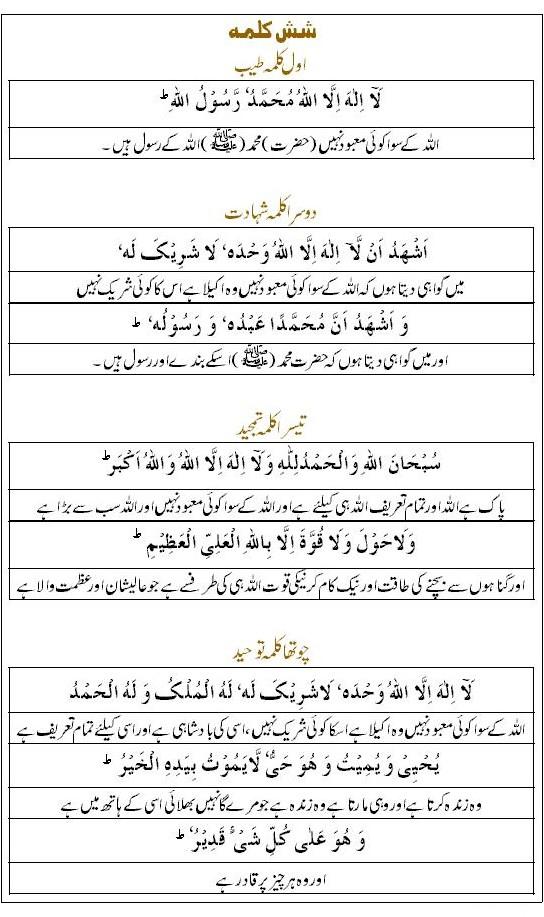 شش کلمہ
اول کلمہ طیب
لَآ اِلٰهَ اِلَّا اللهُ مُحَمَّدٌ رَّسُوْلُ اللهِ ؕ
اللہ کے سوا کوئی معبود نہیں (حضرت) محمد (ﷺ) اللہ کے رسول ہیں ۔
دوسرا کلمہ شہادت
اَشْهَدُ اَنْ لَّآ اِلٰهَ اِلَّا اللهُ وَحْدَهٗ لَا شَرِيْکَ لَهٗ
میں گواہی دیتا ہوں کہ اللہ کے سوا کوئی معبود نہیں وہ اکیلا ہے اس کا کوئی شریک نہیں
وَ اَشْهَدُ اَنَّ مُحَمَّدًا عَبْدُهٗ وَ رَسُوْلُهٗ ؕ
اور میں گواہی دیتا ہوں کہ حضرت محمد (ﷺ) اسکے بندے اور رسول ہیں ۔
تیسرا کلمہ تمجید
سُبْحَانَ اللهِ وَالْحَمْدُ لِلّٰهِ وَلَآ اِلٰهَ اِلَّا اللهُ وَاللهُ اَکْبَرُ ؕ
پاک ہے اللہ اور تمام تعریف اللہ ہی کیلئے ہے اور اللہ کے سوا کوئی معبود نہیں اور اللہ سب سے بڑا ہے
وَلَا حَوْلَ وَلَا قُوَّةَ اِلَّا بِاللهِ الْعَلِيِّ الْعَظِيْمِ ؕ
اور گناہوں سے بچنے کی طاقت اور نیک کام کرنیکی قوت اللہ ہی کی طرفسے ہے جو عالیشان اور عظمت والا ہے
چوتھا کلمہ توحید
لَآ اِلٰهَ اِلَّا اللهُ وَحْدَهٗ لَا شَرِيْکَ لَهٗ لَهُ الْمُلْکُ وَ لَهُ الْحَمْدُ
اللہ کے سوا کوئی معبود نہیں وہ اکیلا ہے اسکا کوئی شریک نہیں، اسی کی بادشاہی ہے اور اسی کیلئے تمام تعریف ہے
يُحْيِيْ وَ يُمِيْتُ وَ هُوَ حَيٌّ لَّا يَمُوْتُ بِيَدِهِ الْخَيْرُ ؕ
وہ زندہ کرتا ہے اور وہی مارتا ہے وہ زندہ ہے جو مرے گا نہیں بھلائی اسی کے ہاتھ میں ہے
وَ هُوَ عَلٰی کُلِّ شَيْءٍ قَدِيْرٌ ؕ
اور وہ ہر چیز پر قادر ہے